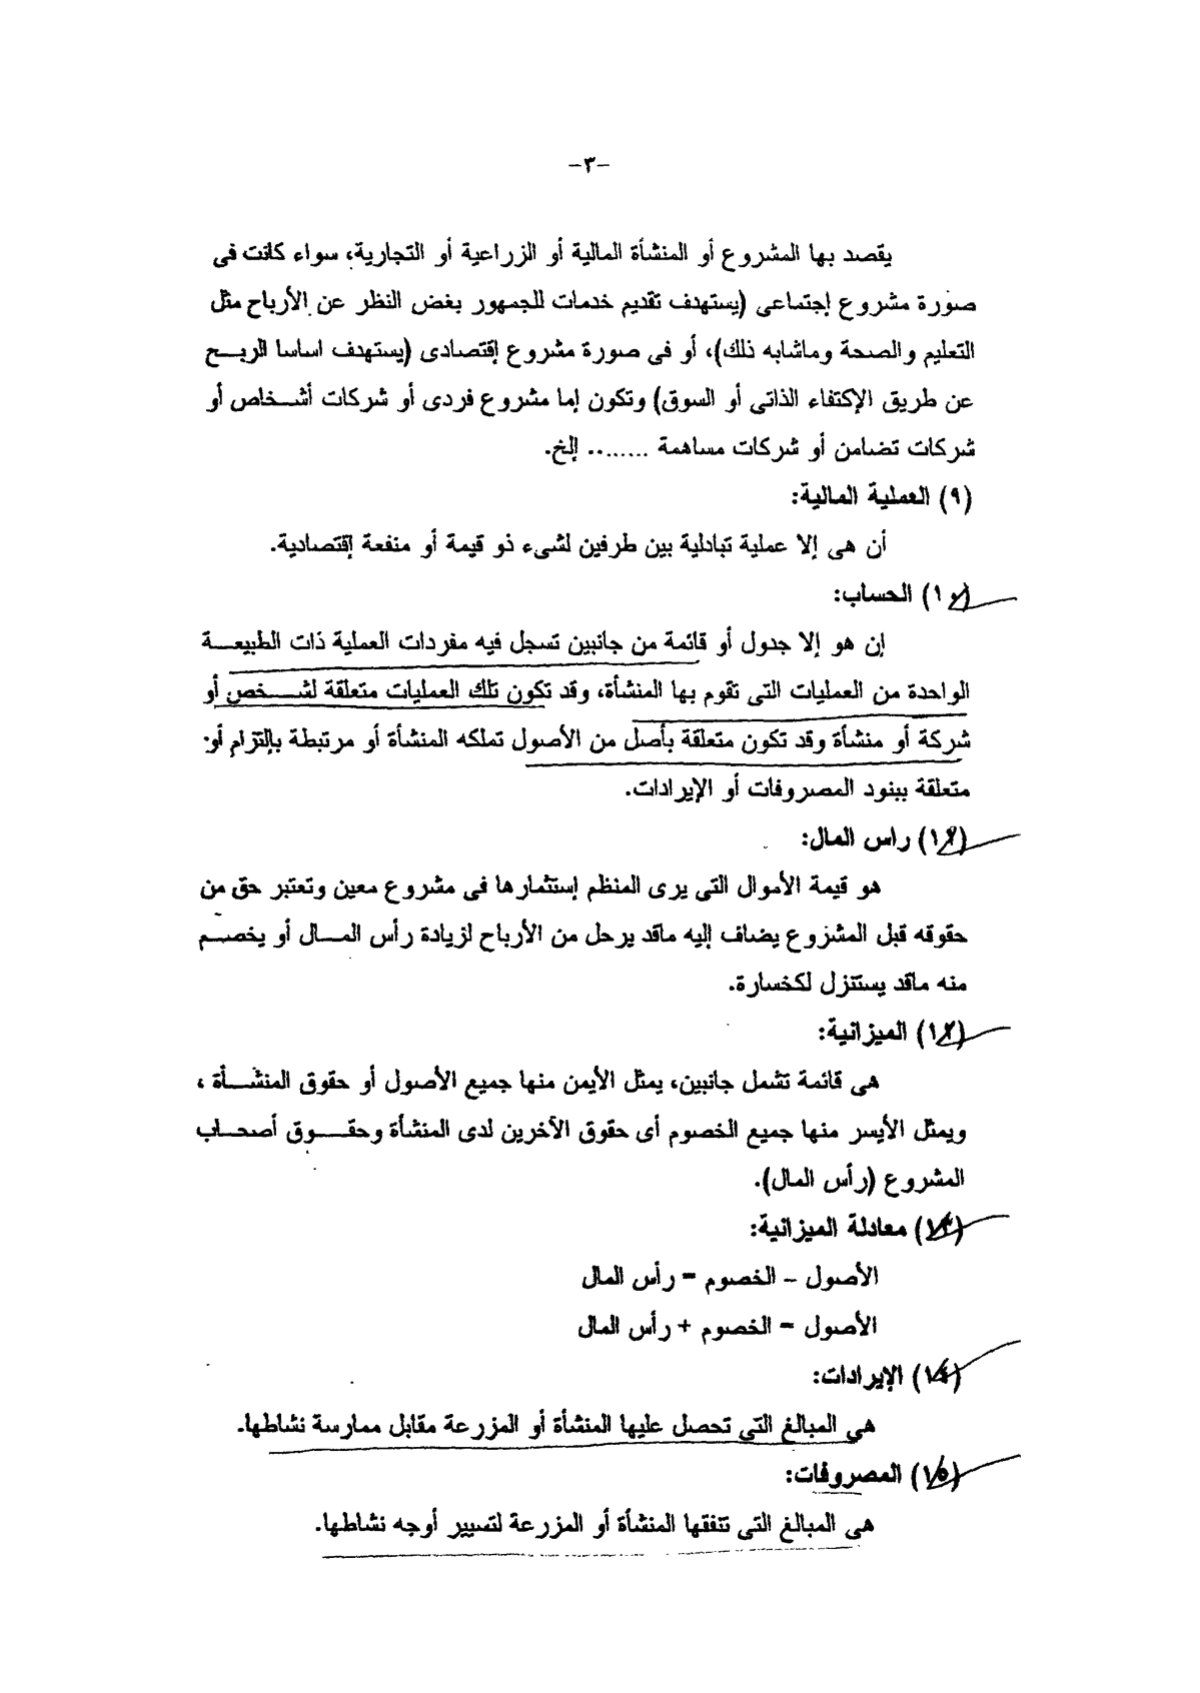 -٣-
يقصد بها المشروع أو المنشأة المالية أو الزراعية أو التجارية، سواء كانت فى
صورة مشروع إجتماعى (يستهدف تقديم خدمات للجمهور بغض النظر عن الأرباح مثل
التعليم والصحة وماشابه ذلك)، أو فى صورة مشروع إقتصادى (يستهدف اساسا الربح
عن طريق الإكتفاء الذاتى أو السوق) وتكون إما مشروع فردى أو شركات أشخاص أو
شركات تضامن أو شركات مساهمة ....... إلخ.
(٩) العملية المالية:
أن هى إلا عملية تبادلية بين طرفين لشىء ذو قيمة أو منفعة إقتصادية.
(١٠) الحساب:
إن هو إلا جدول أو قائمة من جانبين تسجل فيه مفردات العملية ذات الطبيعة
الواحدة من العمليات التى تقوم بها المنشأة، وقد تكون تلك العمليات متعلقة لشخص أو
شركة أو منشأة وقد تكون متعلقة بأصل من الأصول تملكه المنشأة أو مرتبطة بإلتزام أو
متعلقة ببنود المصروفات أو الإيرادات.
راس المال:
هو قيمة الأموال التى يرى المنظم إستثمارها فى مشروع معين وتعتبر حق من
حقوقه قبل المشروع يضاف إليه ماقد يرحل من الأرباح لزيادة رأس المال أو يخصم
منه ماقد يستنزل لكخسارة.
(١٢) الميزانية:
هى قائمة تشمل جانبين، يمثل الأيمن منها جميع الأصول أو حقوق المنشأة ،
ويمثل الأيسر منها جميع الخصوم أى حقوق الآخرين لدى المنشأة وحقوق أصحاب
المشروع (رأس المال).
(١٣) معادلة الميزانية:
الأصول – الخصوم = رأس المال
الأصول = الخصوم + رأس المال
(١٤) الإيرادات:
هى المبالغ التى تحصل عليها المنشأة أو المزرعة مقابل ممارسة نشاطها.
(١٥) المصروفات:
هى المبالغ التى تنفقها المنشأة أو المزرعة لتسيير أوجه نشاطها.